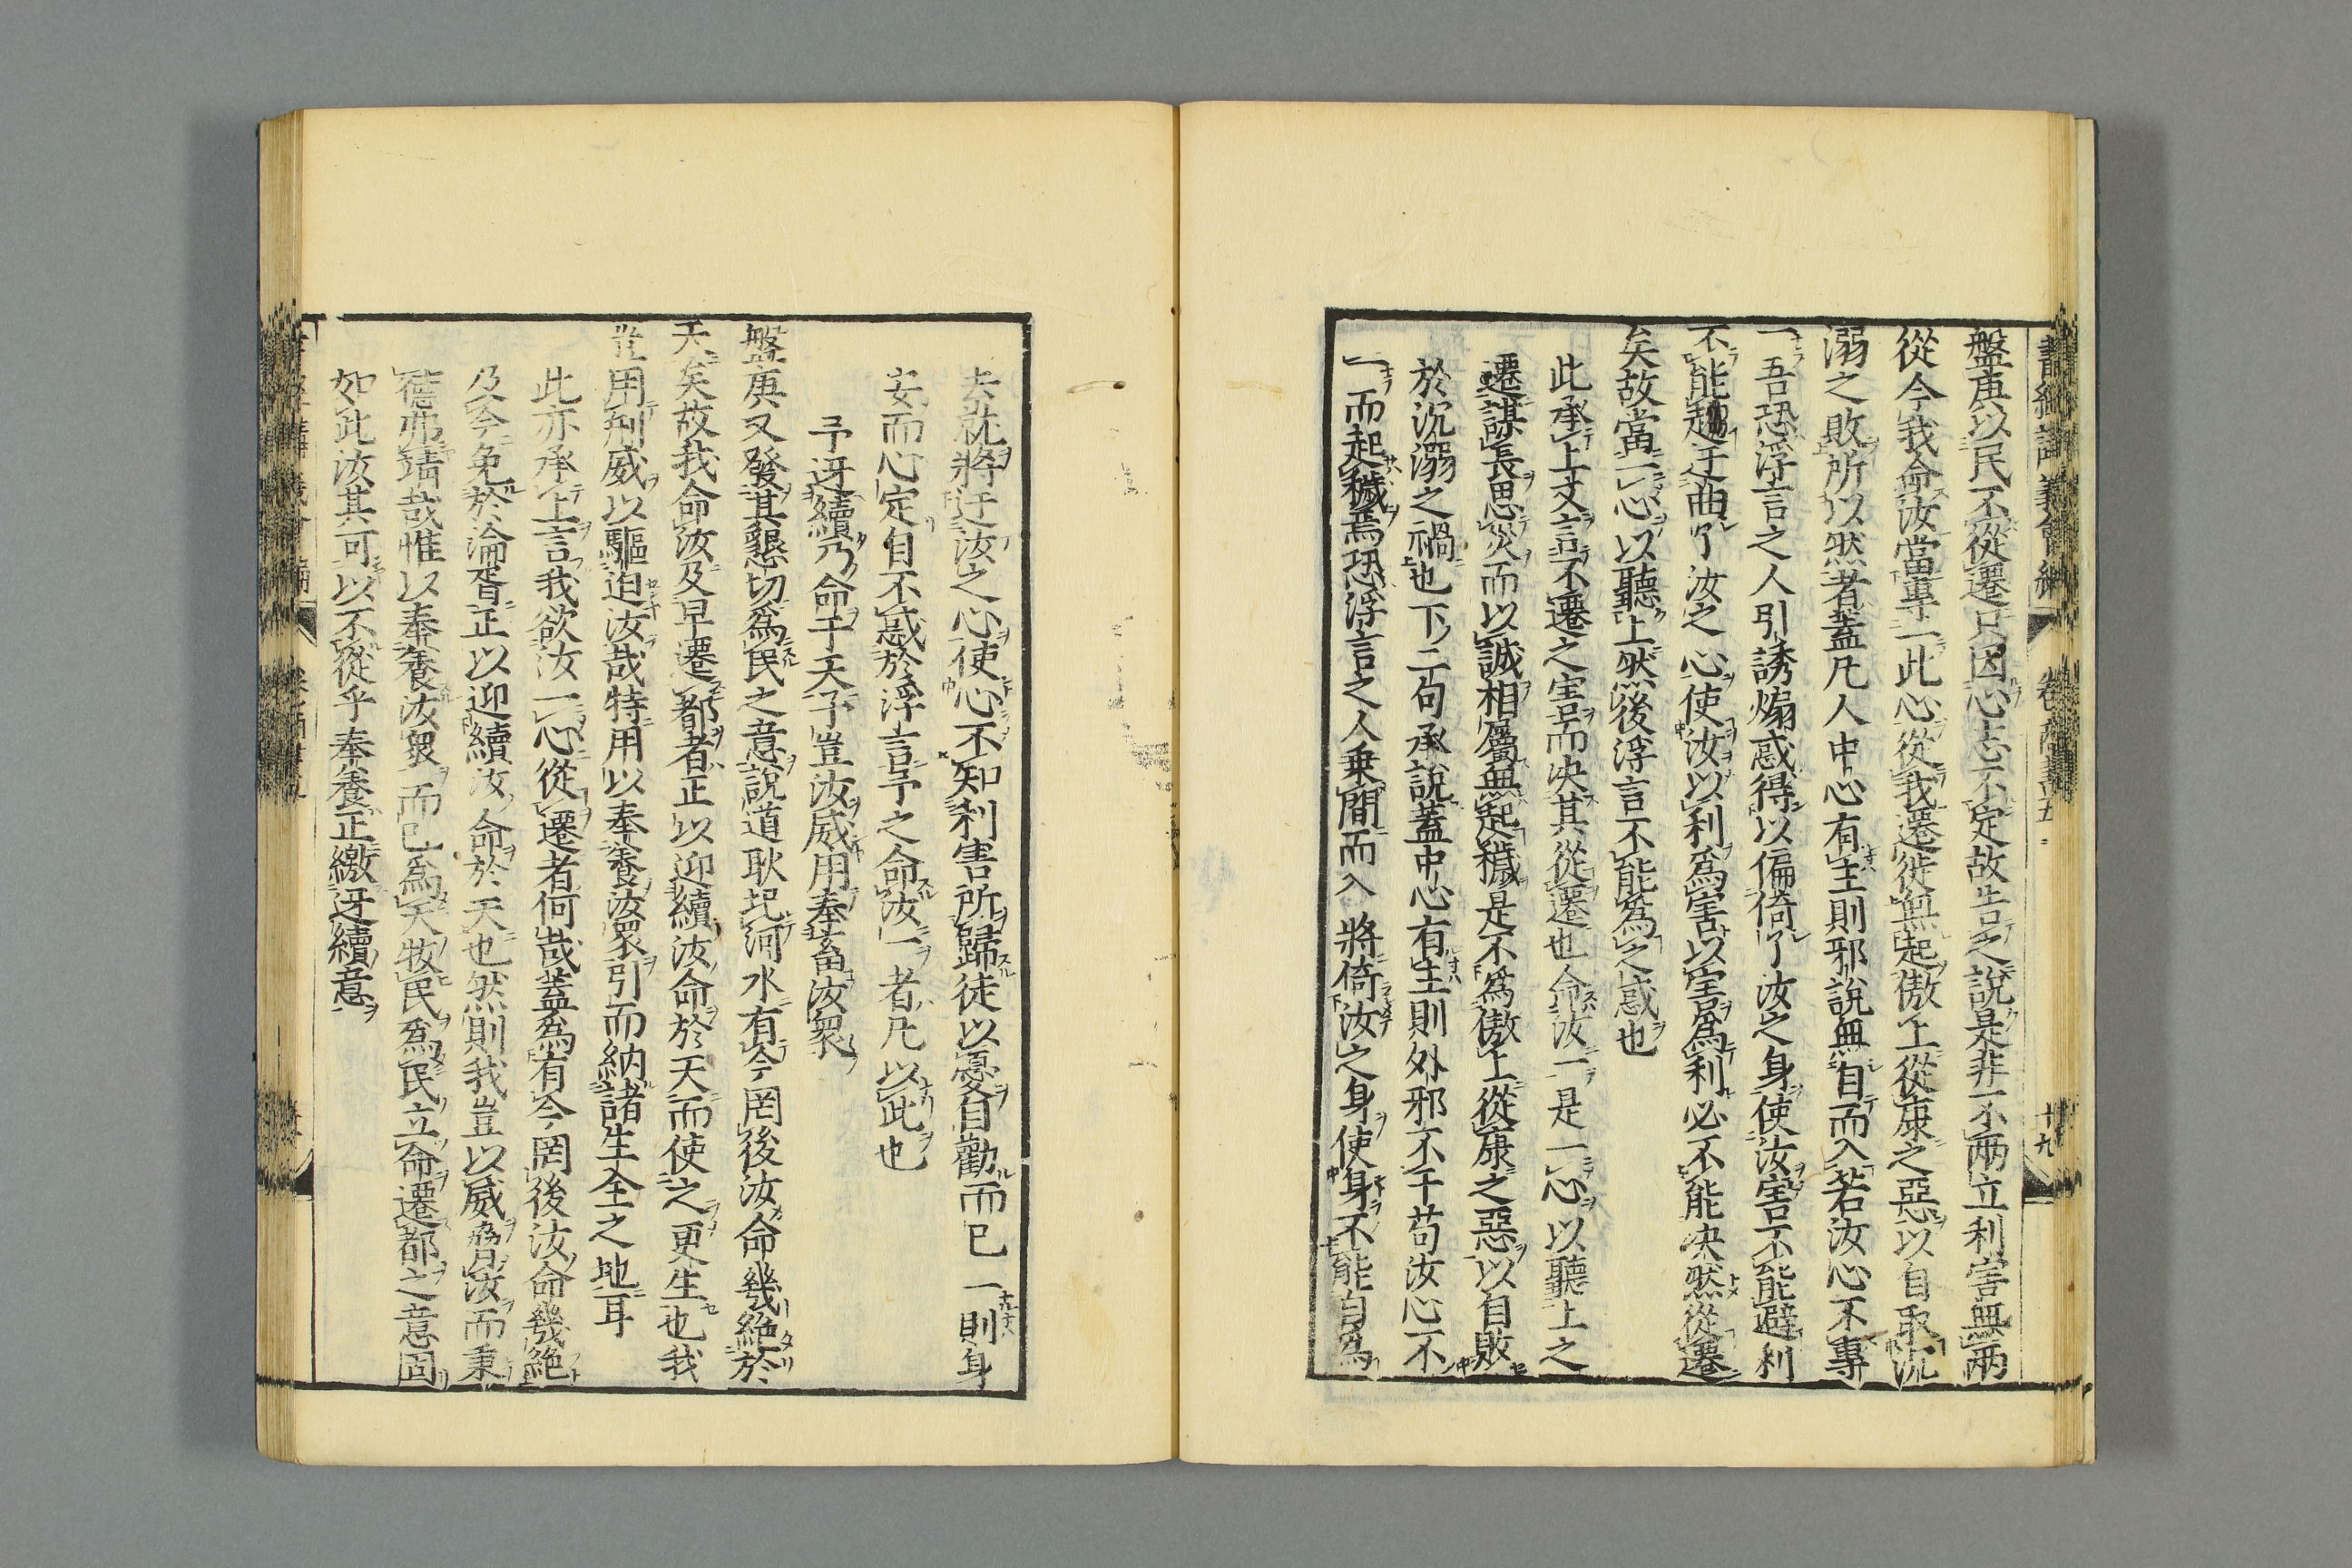 盤庚以民不從遷只因心志不定故告之說是非不兩立利害無兩
從今我命汝當專一此心從我遷徙無起傲上從康之惡以自取沉
溺之敗所以然者蓋凡人中心有主則邪說無自而入若汝心不專
一吾恐浮言之人引誘煽惑得以偏倚了汝之身使汝害不能避利
不能趨迂曲了汝之心使汝以利爲害以害爲利必不能決然從遷
矣故當一心以聽上然後浮言不能爲之惑也
此承上文言不遷之害而決其從遷也命汝一是一心以聽上之
遷謀長思災而以誠相屬無起穢是不爲傲上從康之惡以自敗
於沉溺之禍也下二句承說蓋中心有主則外邪不干苟汝心不
一而起穢焉恐浮言之人乗間而入將倚汝之身使身不能自爲
去就將迂汝之心使心不知利害所歸徒以憂自勸而已一則身
安而心定自不惑於浮言予之命汝一者凡以此也
予迓續乃命于天予豈汝威用奉畜汝衆
盤庚又發其懇切爲民之意說道耿圯河水有今罔後汝命幾絶於
天矣故我命汝及早遷都者正以迎續汝命於天而使之更生也我
豈用刑威以驅迫汝哉特用以奉養汝衆引而納諸生全之地耳
此亦承上言我欲汝一心從遷者何哉蓋爲有今罔後汝命幾絶
及今免於淪胥正以迎續汝命於天也然則我豈以威脅汝而秉
德弗靖哉惟以奉養汝衆而已爲天牧民爲民立命遷都之意固
如此汝其可以不從乎奉養正繳迓續意